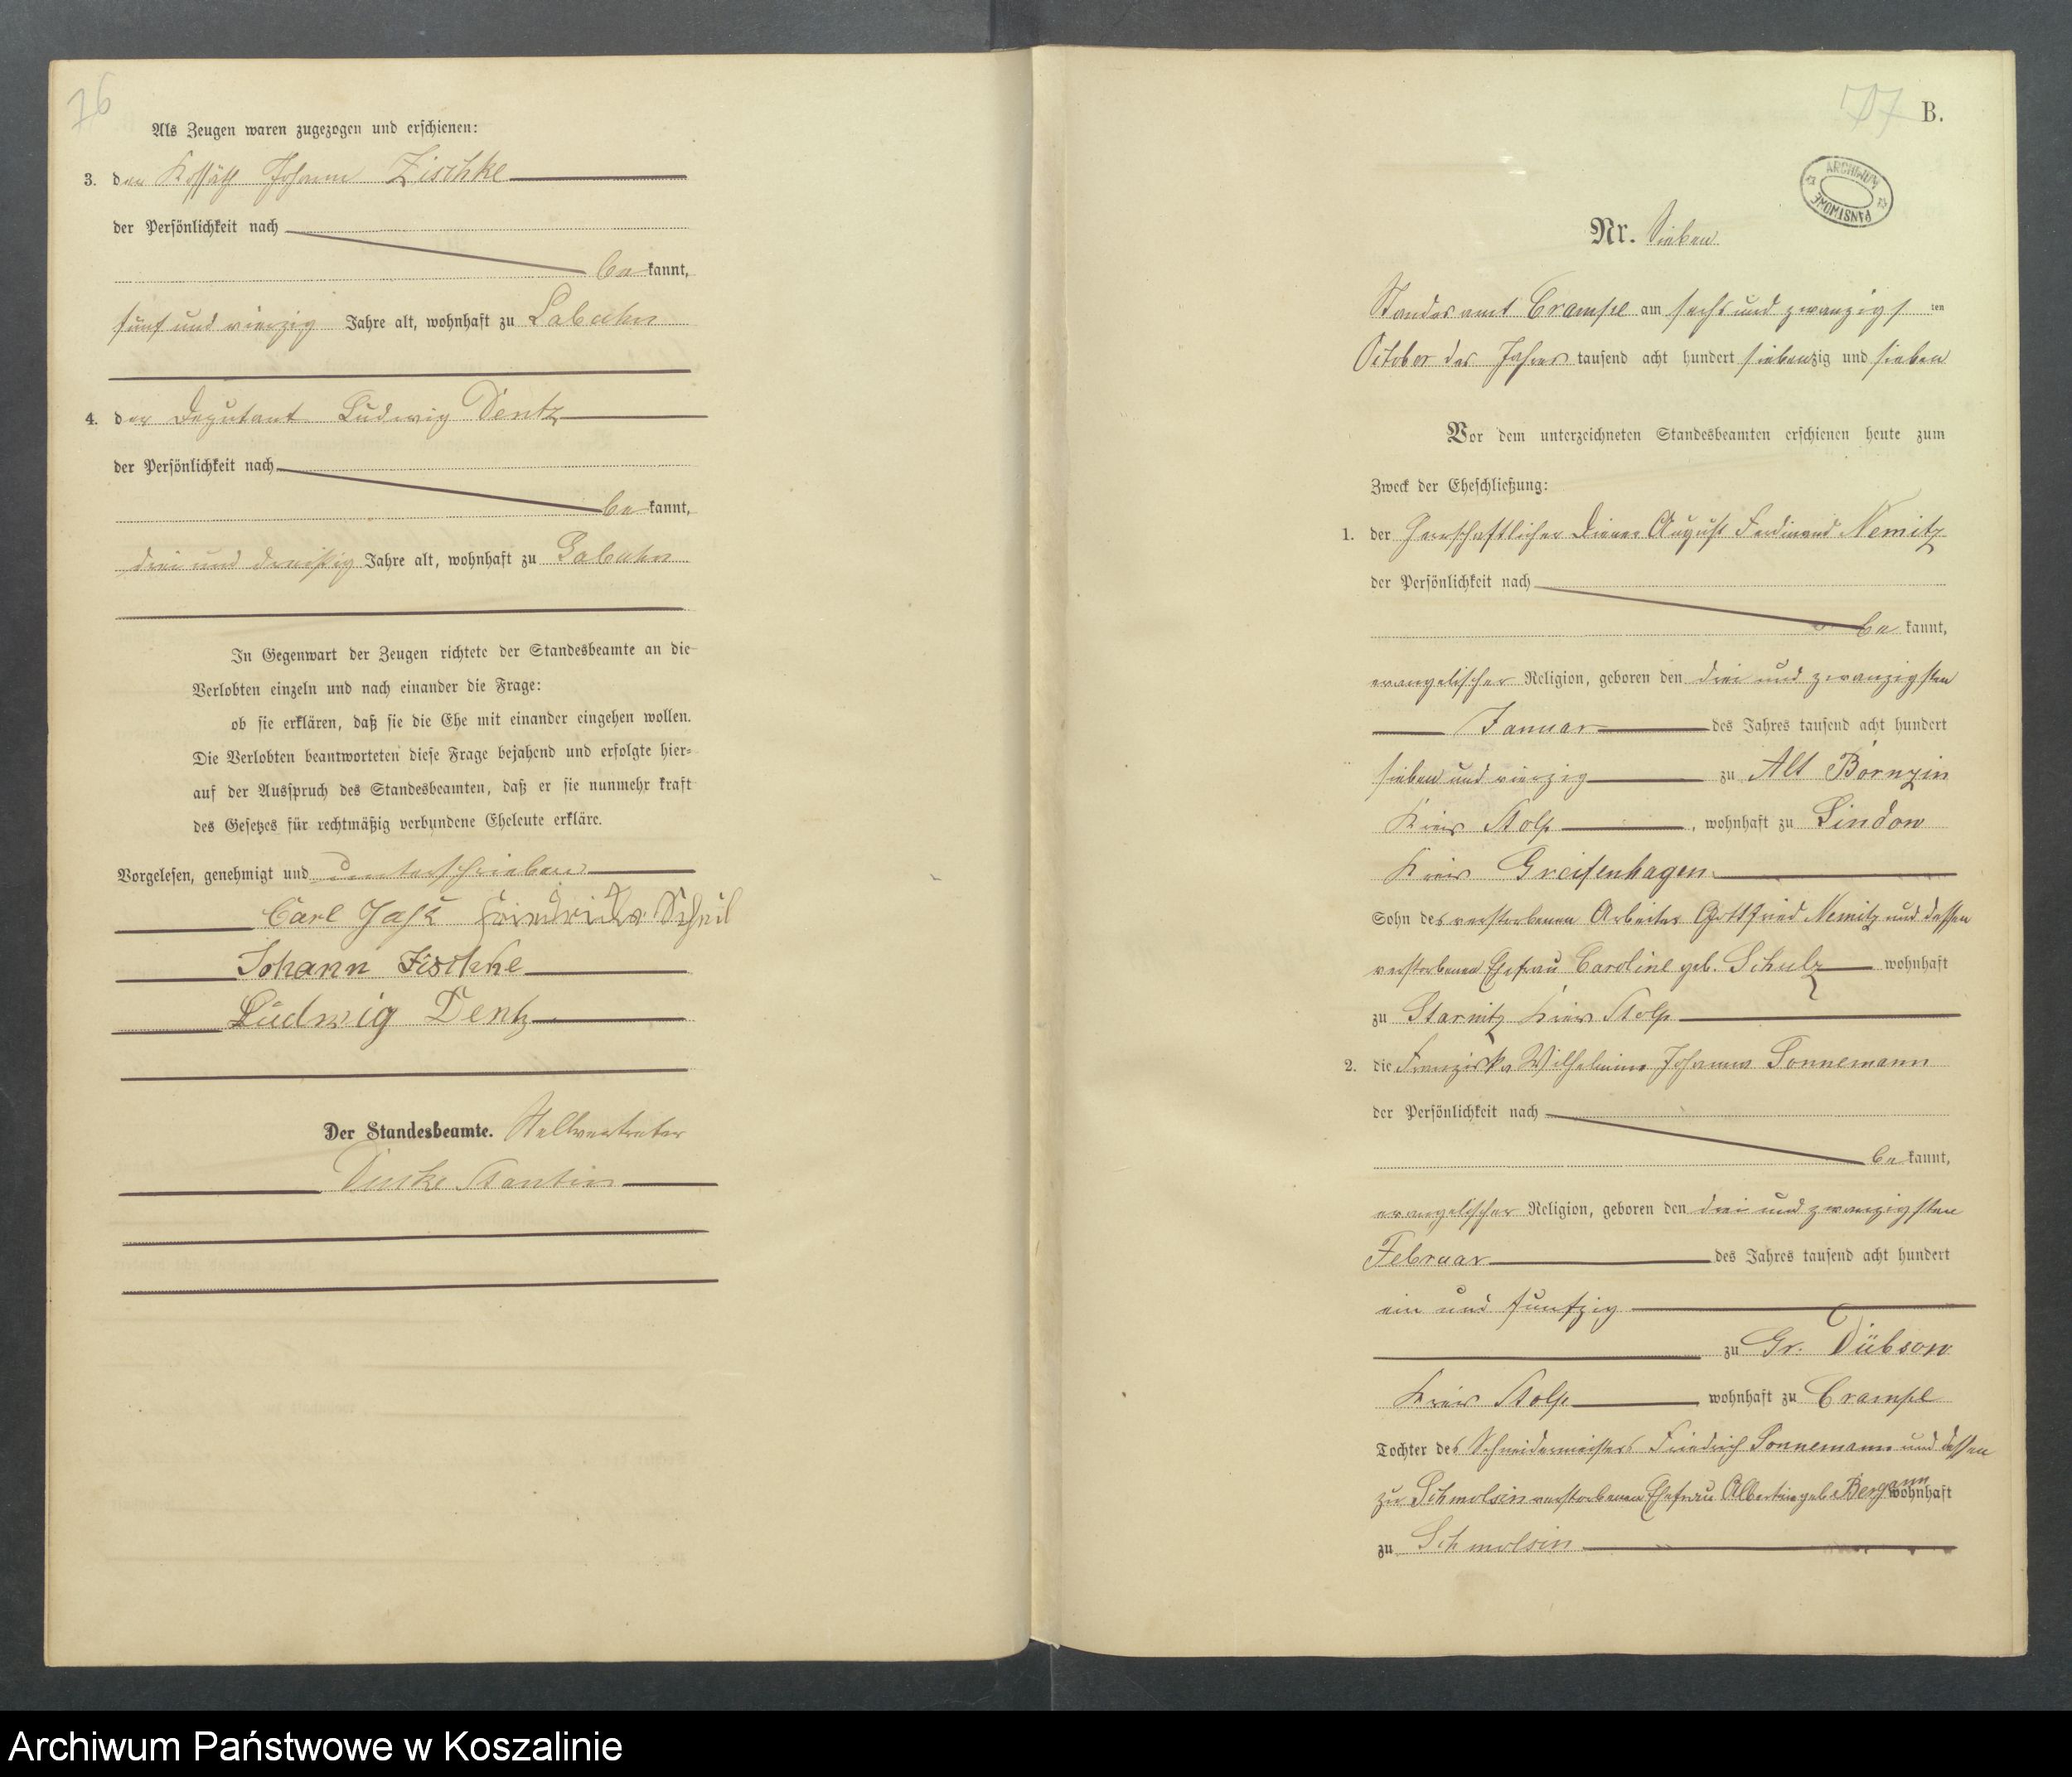 76
Als Zeugen waren zugezogen und erschienen:
3. der Kossäth Johann Zischke
der Persönlichkeit nach
bekannt,
fünf und vierzig Jahre alt, wohnhaft zu Labuhn
4. der Deputant Ludwig Dentz
der Persönlichkeit nach
bekannt,
drei und dreißig Jahre alt, wohnhaft zu Labuhn
In Gegenwart der Zeugen richtete der Standesbeamte an die
Verlobten einzeln und nach einander die Frage:
ob sie erklären, daß sie die Ehe mit einander eingehen wollen.
Die Verlobten beantworteten diese Frage bejahend und erfolgte hier-
auf der Ausspruch des Standesbeamten, daß er sie nunmehr kraft
des Gesetzes für rechtmäßig verbundene Eheleute erkläre.
Vorgelesen, genehmigt und unterschrieben
Carl Friedricke
Johann Zischke
Ludwig Dentz
Der Standesbeamte. Stellvertreter
77 B.
ARCHIWUM PAŃSTWOWE
Nr. Sieben.
Standesamt Crampe am sechs und zwanzigsten
October des Jahres tausend acht hundert siebenzig und sieben
Vor dem unterzeichneten Standesbeamten erschienen heute zum
Zweck der Eheschließung:
1. der Herrschaftlicher Diener August Ferdinand Nemitz
der Persönlichkeit nach
bekannt,
evangelischer Religion, geboren den drei und zwanzigsten
Januar des Jahres tausend acht hundert
sieben und vierzig zu Alt Bornzin
Kreis Stolp, wohnhaft zu Lindow
Kreis Greifenhagen
Sohn des verstorbenen Arbeiter Gottfried Nemitz und dessen
verstorbenen Ehefrau Caroline geb. Schulz wohnhaft
zu Starnitz Kreis Stolp
2. die Franziska Wilhelmine Johanna Sonnemann
der Persönlichkeit nach
bekannt,
evangelischer Religion, geboren den drei und zwanzigsten
Februar des Jahres tausend acht hundert
ein und funfzig
zu Gr. Dübsow
Kreis Stolp wohnhaft zu Crampe
Tochter des Schneidermeisters Friedrich Sonnemann und dessen
zu Schmolsin verstorbenen Ehefrau Albertine geb. Bergann wohnhaft
zu Schmolsin
Archiwum Państwowe w Koszalinie